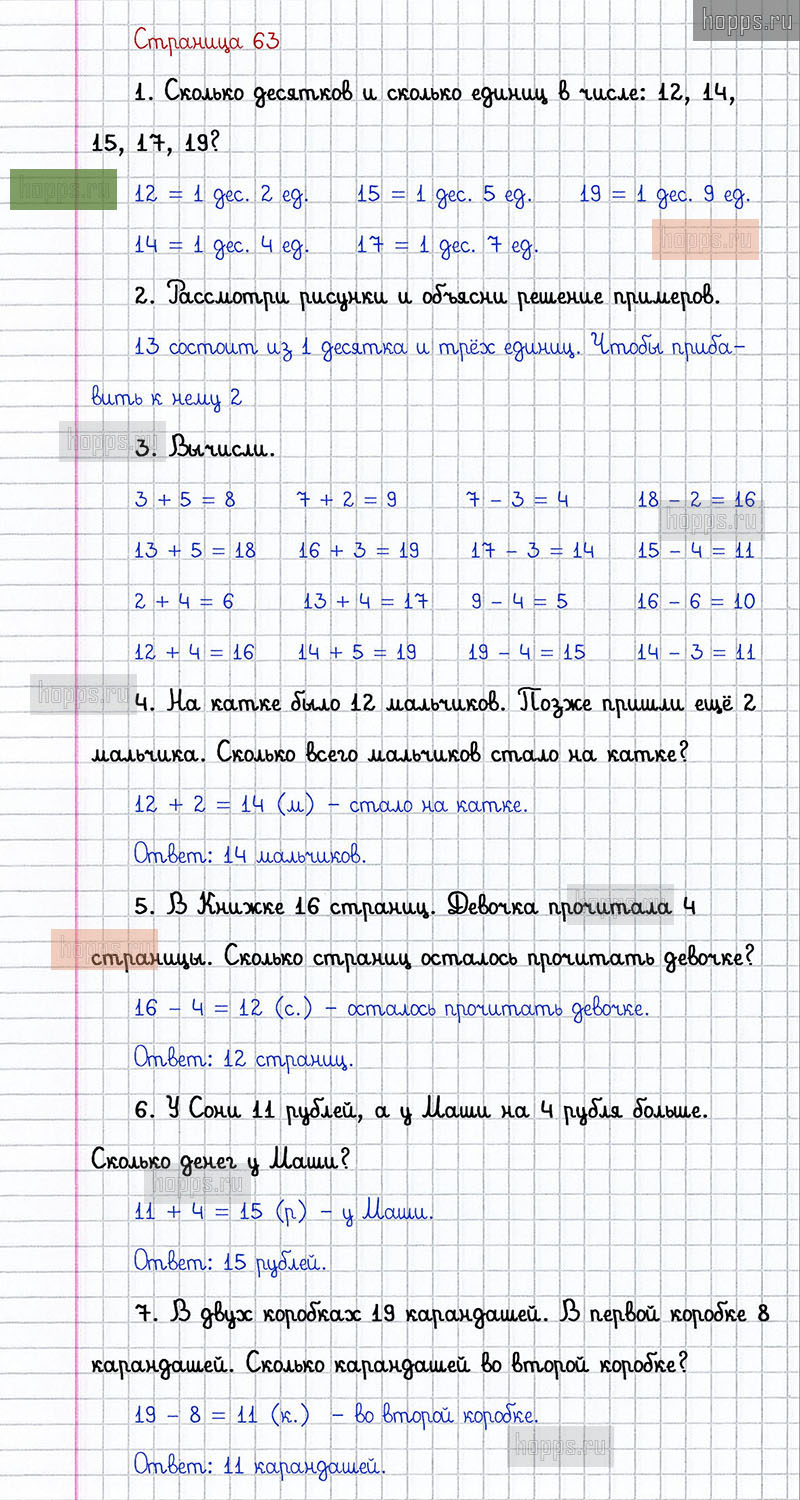 hopps.ru
Страница 63
1. Сколько десятков и сколько единиц в числе: 12, 14,
15, 17, 19?
hopps.ru
12 = 1 дес. 2 ед. 15 = 1 дес. 5 ед. 19 = 1 дес. 9 ед.
hopps.ru
14 = 1 дес. 4 ед. 17 = 1 дес. 7 ед.
2. Рассмотри рисунки и объясни решение примеров.
13 состоит из 1 десятка и трёх единиц. Чтобы приба-
вить к нему 2
hopps.ru
3. Вычисли.
3 + 5 = 8 7 + 2 = 9 7 - 3 = 4 18 - 2 = 16
hopps.ru
13 + 5 = 18 16 + 3 = 19 17 - 3 = 14 15 - 4 = 11
2 + 4 = 6 13 + 4 = 17 9 - 4 = 5 16 - 6 = 10
12 + 4 = 16 14 + 5 = 19 19 - 4 = 15 14 - 3 = 11
hopps.ru
4. На катке было 12 мальчиков. Позже пришли ещё 2
мальчика. Сколько всего мальчиков стало на катке?
12 + 2 = 14 (м) - стало на катке.
Ответ: 14 мальчиков.
hopps.ru
5. В Книжке 16 страниц. Девочка прочитала 4
hopps.ru
страницы. Сколько страниц осталось прочитать девочке?
16 - 4 = 12 (с.) - осталось прочитать девочке.
Ответ: 12 страниц.
6. У Сони 11 рублей, а у Маши на 4 рубля больше.
Сколько денег у Маши?
hopps.ru
11 + 4 = 15 (р) - у Маши.
Ответ: 15 рублей.
7. В двух коробках 19 карандашей. В первой коробке 8
карандашей. Сколько карандашей во второй коробке?
19 - 8 = 11 (к.) - во второй коробке.
hopps.ru
Ответ: 11 карандашей.